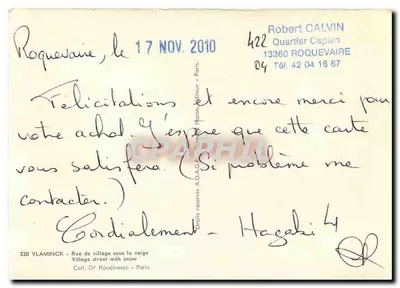 Roquevaire, le 17 NOV. 2010
Robert CALVIN
422 Quartier Caplen
13360 ROQUEVAIRE
04 Tél. 42 04 18 67
Félicitations et encore merci pour
votre achat. J'espère que cette carte
vous satisfera. (Si problème me
contacter.)
Cordialement - Hagabi 4
320 VLAMINCK - Rue de village sous la neige
Village street with snow
Coll. Dr Roudinesco - Paris
Droits réservés A.D.A.G.P. Hazan, Editeur - Paris.